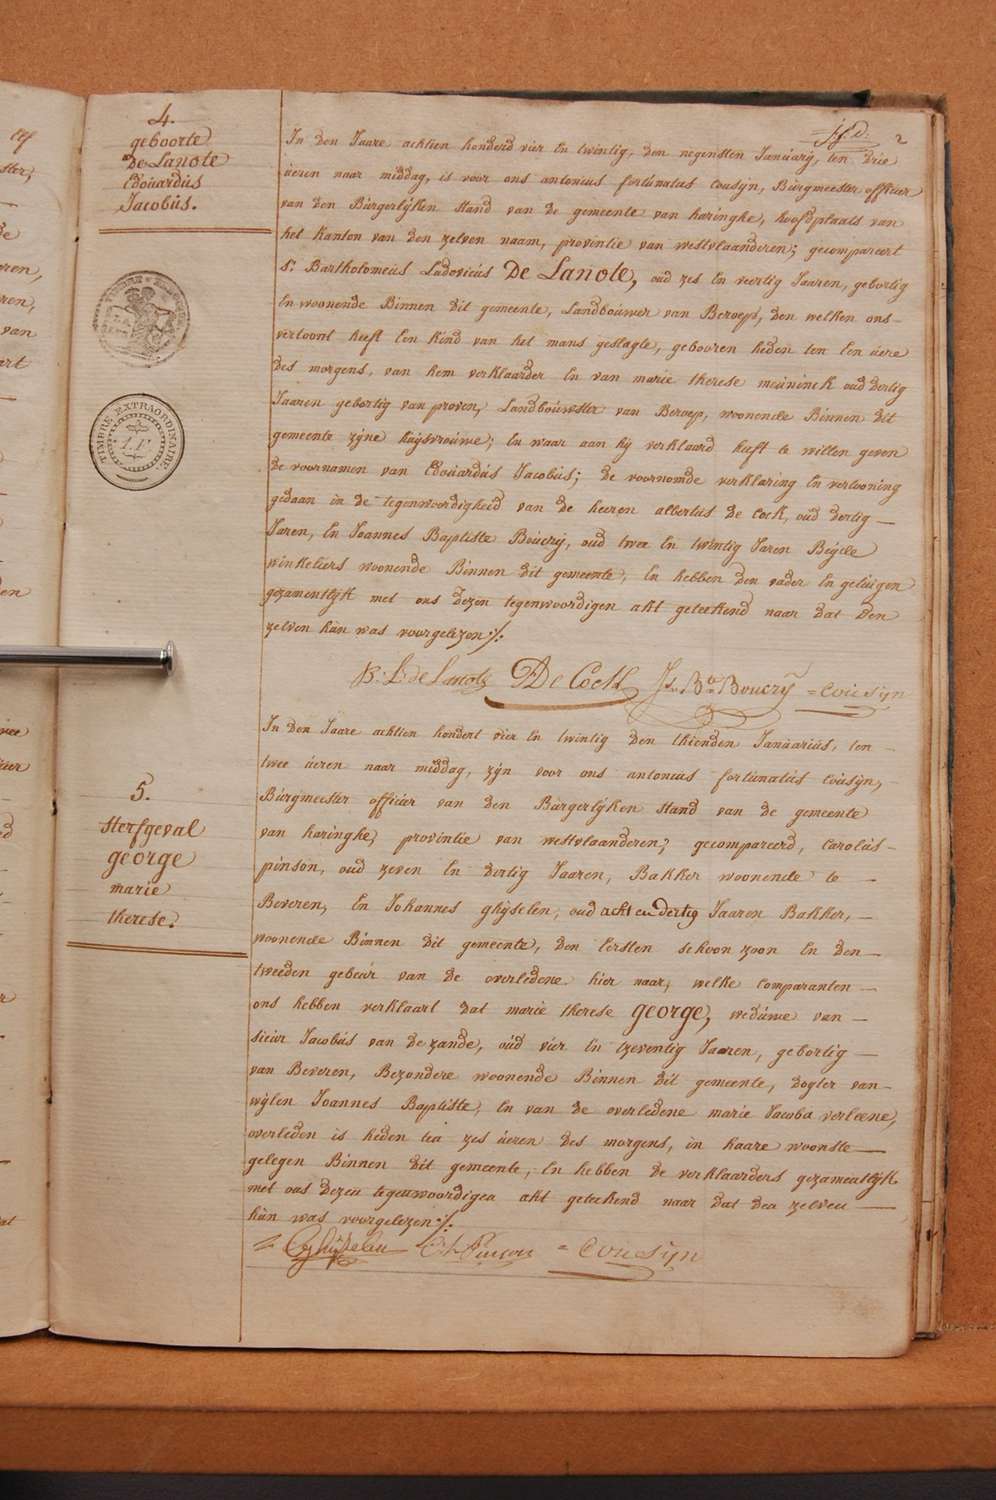 2
4.
geboorte
De Lanote
Edoüardüs
Jacobüs.
TIMBRE EXTRAORDINAIRE
In den Jaare achtien honderd vier En twintig, den negensten Januarÿ, ten drie
üeren naar middag, is voor ons antonius fortünatüs Coüsÿn, Bürgmeester officier
van den Bürgerlÿken stand van de gemeente van haringhe, hoofdplaats van
het Kanton van den zelven naam, provintie van westvlaanderen; gecompareert
Sr. Bartholomeüs Ludovicüs De Lanote, oud zes En veertig Jaaren, gebortig
En woonende Binnen dit gemeente, Landboüwer van Beroep, den welken ons
vertoont heeft Een Kind van het mans geslagte, gebooren heden ten Een üere
des morgens, van hem verklaarder En van marie therese meüninck oud dertig
Jaaren gebortig van proven, Landboüwster van Beroep, woonende Binnen dit
gemeente zÿne hüÿsvroüwe; En waar aan hÿ verklaard heeft te willen geven
de voornamen van Edoüardüs Jacobüs; de voornomde verklaring En vertooning
gedaan in de tegenwoordigheid van de heeren albertüs de Cock, oüd dertig
Jaren, En Joannes Baptiste Boucrÿ, oud twee En twintig Jaren Beÿde
winkeliers woonende Binnen dit gemeente, En hebben den vader En getüigen
gezamentlÿk met ons dezen tegenwoordigen akt geteekend naar dat den
zelven hün was voorgelezen ./.
B: L: de Lanote De Cock Js. Bte. Boucrÿ = Coüsÿn
In den Jaare achtien hondert vier En twintig den thienden Janüariüs, ten
twee üeren naar middag, zÿn voor ons antonius fortünatüs Coüsÿn,
Bürgmeester officier van den Bürgerlÿken stand van de gemeente
van haringhe, provintie van westvlaanderen; gecompareerd, Carolüs
pinson, oud zeven En dertig Jaaren, Bakker woonende te
Beveren, En Johannes ghÿselen, oud acht en dertig Jaaren Bakker,
woonende Binnen dit gemeente, den Eersten schoon zoon En den
tweeden gebeür van de overledene hier naar, welke comparanten
ons hebben verklaart dat marie therese george, wedüwe van
sieür Jacobüs van de zande, oüd vier En tzeventig Jaaren, gebortig
van Beveren, Bezondere woonende Binnen dit gemeente, dogter van
wÿlen Joannes Baptiste, En van de overledene marie Jacoba verleene,
overleden is heden ten zes üeren des morgens, in haare woonste
gelegen Binnen dit gemeente, En hebben de verklaarders gezamentlÿk
met ons dezen tegenwoordigen akt geteekend naar dat den zelven
hün was voorgelezen ./.
5.
sterfgeval
george
marie
therese.
= Ghÿselen Ch. Pinson = Coüsÿn